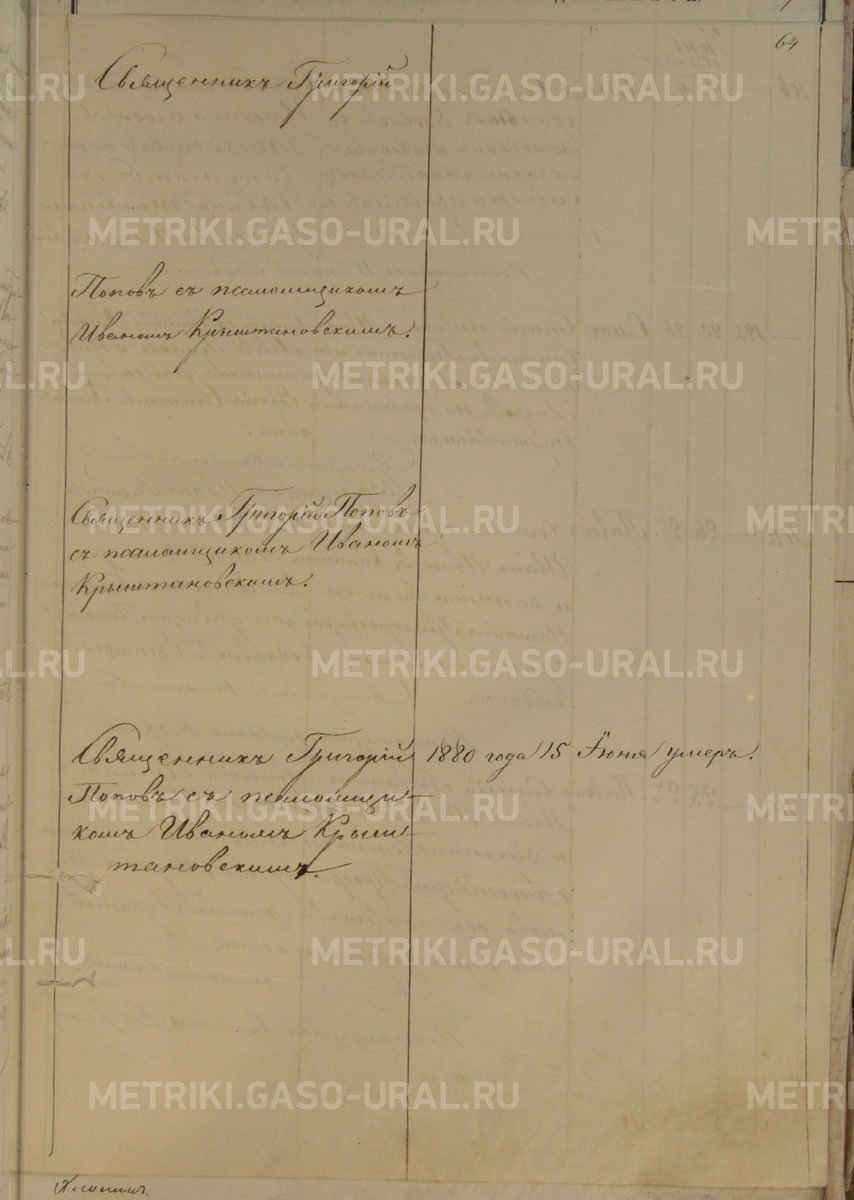 64
Священникъ Григорій
Поповъ съ псаломщикомъ
Иваномъ Крыштановскимъ.
Священникъ Григорій Поповъ
съ псаломщикомъ Иваномъ
Крыштановскимъ.
Священникъ Григорій
Поповъ съ псаломщи-
комъ Иваномъ Крыш-
тановскимъ.
1880 года 15 Іюня умеръ.
METRIKI.GASO-URAL.RU